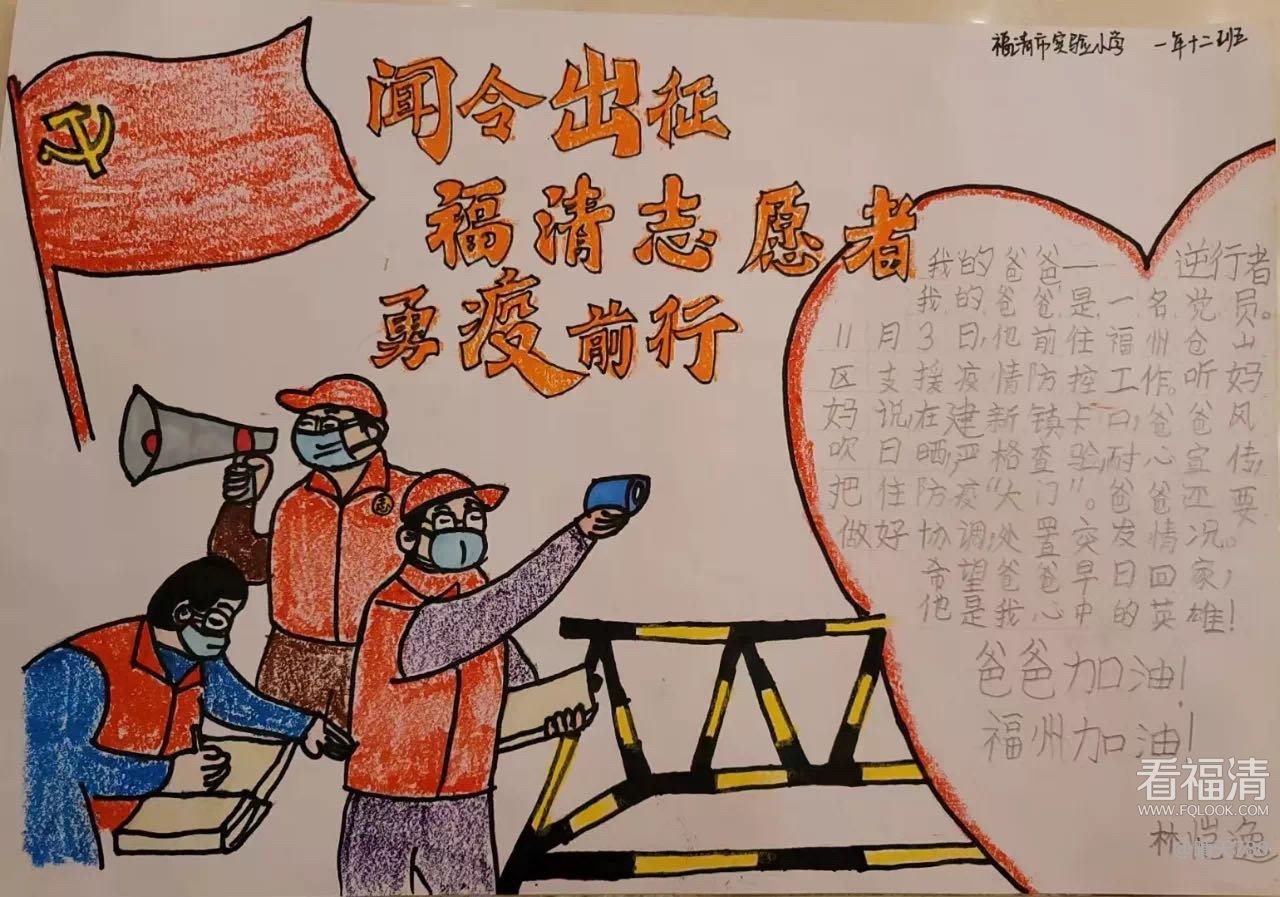 福清市实验小学 一年十二班
闻令出征
福清志愿者
勇疫前行
我的爸爸——逆行者
我的爸爸是一名党员。
11月3日,他前往福州仓山
区支援疫情防控工作。听妈
妈说在建新镇卡口,爸爸风
吹日晒,严格查验,耐心宣传,
把住防疫“大门”。爸爸还要
做好协调,处置突发情况。
希望爸爸早日回家,
他是我心中的英雄!
爸爸加油!
福州加油!
林恺逸
志
看福清
WWW.FQLOOK.COM